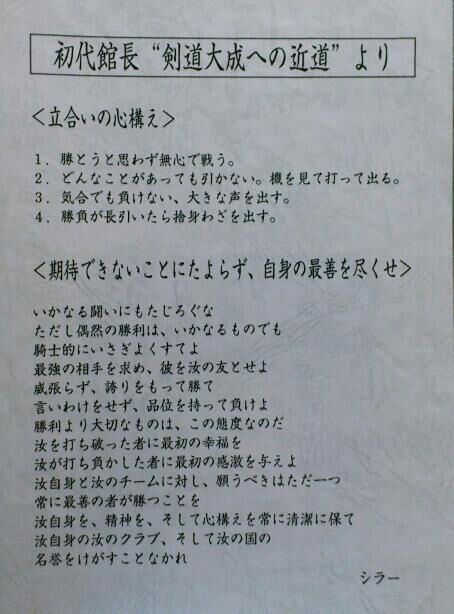 初代館長“剣道大成への近道”より
＜立合いの心構え＞
１．勝とうと思わず無心で戦う。
２．どんなことがあっても引かない。機を見て打って出る。
３．気合でも負けない、大きな声を出す。
４．勝負が長引いたら捨身わざを出す。
＜期待できないことにたよらず、自身の最善を尽くせ＞
いかなる闘いにもたじろぐな
ただし偶然の勝利は、いかなるものでも
騎士的にいさぎよくすてよ
最強の相手を求め、彼を汝の友とせよ
威張らず、誇りをもって勝て
言いわけをせず、品位を持って負けよ
勝利より大切なものは、この態度なのだ
汝を打ち破った者に最初の幸福を
汝が打ち負かした者に最初の感激を与えよ
汝自身と汝のチームに対し、願うべきはただ一つ
常に最善の者が勝つことを
汝自身を、精神を、そして心構えを常に清潔に保て
汝自身の汝のクラブ、そして汝の国の
名誉をけがすことなかれ
シラー